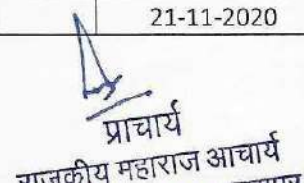 21-11-2020
प्राचार्य
राजकीय महाराज आचार्य